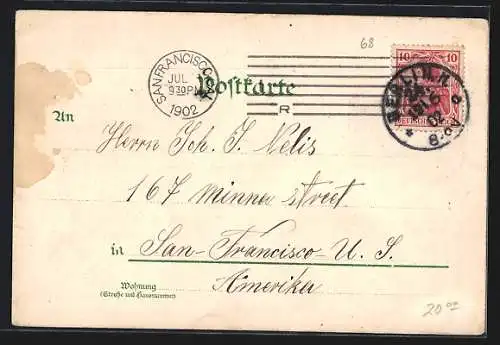 68
SAN FRANCISCO, CAL.
JUL
930 PM
1902
R
10 10
BERLIN. N.
Postkarte
An
Herrn Joh. J. Nelis
167 Minna street
in San-Francisco-U. S.
Amerika
Wohnung
(Straße und Hausnummer)
20.00